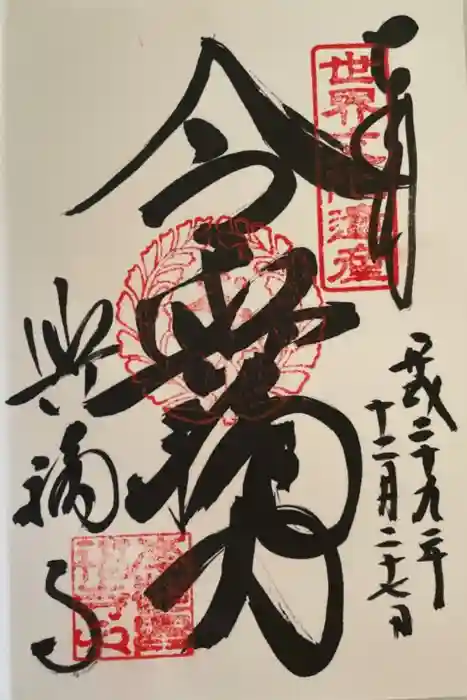 奉拝
世界文化遺産
平成二十九年
十二月二十七日
令興福力
興福寺